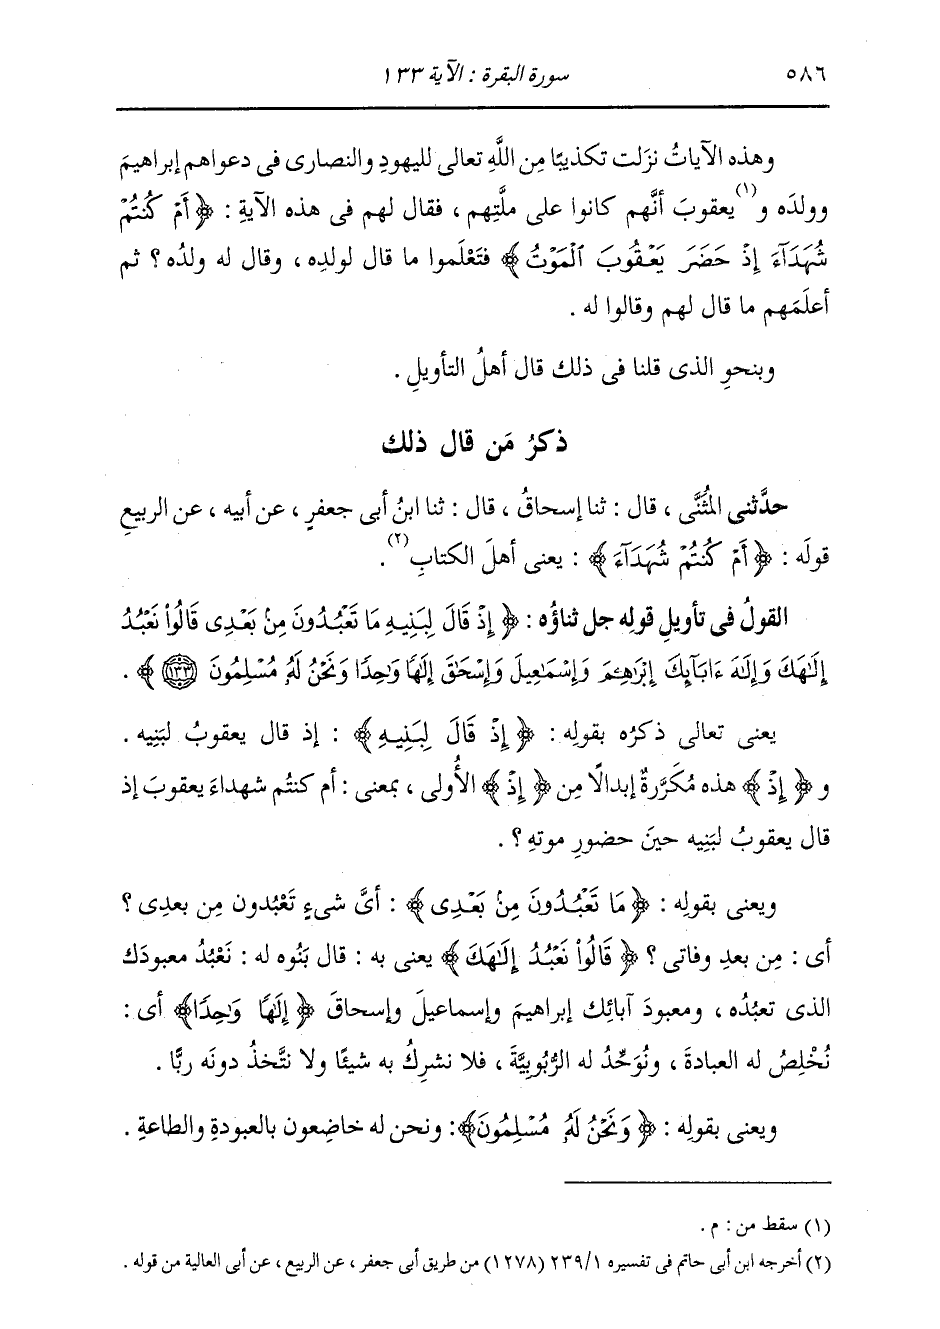 ٥٨٦ سورة البقرة : الآية ١٣٣
وهذه الآياتُ نزَلت تكذيبًا مِن اللَّهِ تعالى لليهودِ والنصارى فى دعواهم إبراهيمَ
وولدَه و(١)يعقوبَ أنَّهم كانوا على ملَّتِهم ، فقال لهم فى هذه الآيةِ : ﴿ أَمْ كُنتُمْ
شُهَدَآءَ إِذْ حَضَرَ يَعْقُوبَ ٱلْمَوْتُ ﴾ فتَعْلَموا ما قال لولدِه ، وقال له ولدُه ؟ ثم
أعلَمَهم ما قال لهم وقالوا له .
وبنحوِ الذى قلنا فى ذلك قال أهلُ التأويلِ .
ذكرُ مَن قال ذلك
حدَّثنى المُثَنَّى ، قال : ثنا إسحاقُ ، قال : ثنا ابنُ أبى جعفرٍ ، عن أبيه ، عن الربيعِ
قولَه : ﴿ أَمْ كُنتُمْ شُهَدَآءَ ﴾ : يعنى أهلَ الكتابِ(٢) .
القولُ فى تأويلِ قولِه جل ثناؤُه : ﴿ إِذْ قَالَ لِبَنِيهِ مَا تَعْبُدُونَ مِنۢ بَعْدِى قَالُوا۟ نَعْبُدُ
إِلَٰهَكَ وَإِلَٰهَ ءَابَآئِكَ إِبْرَٰهِـۧمَ وَإِسْمَٰعِيلَ وَإِسْحَٰقَ إِلَٰهًا وَٰحِدًا وَنَحْنُ لَهُۥ مُسْلِمُونَ ١٣٣ ﴾ .
يعنى تعالى ذكرُه بقولِه : ﴿ إِذْ قَالَ لِبَنِيهِ ﴾ : إذ قال يعقوبُ لبَنِيه .
و ﴿ إِذْ ﴾ هذه مُكَرَّرةٌ إبدالًا مِن ﴿ إِذْ ﴾ الأُولى ، بمعنى : أم كنتُم شهداءَ يعقوبَ إذ
قال يعقوبُ لبَنِيه حينَ حضورِ موتهِ ؟ .
ويعنى بقولِه : ﴿ مَا تَعْبُدُونَ مِنۢ بَعْدِى ﴾ : أىَّ شىءٍ تَعْبُدون مِن بعدِى ؟
أى : مِن بعدِ وفاتى ؟ ﴿ قَالُوا۟ نَعْبُدُ إِلَٰهَكَ ﴾ يعنى به : قال بَنُوه له : نَعْبُدُ معبودَك
الذى تعبُدُه ، ومعبودَ آبائِك إبراهيمَ وإسماعيلَ وإسحاقَ ﴿ إِلَٰهًا وَٰحِدًا﴾ أى :
نُخْلِصُ له العبادةَ ، ونُوَحِّدُ له الرُّبُوبِيَّةَ ، فلا نشرِكُ به شيئًا ولا نتَّخذُ دونَه ربًّا .
ويعنى بقولِه : ﴿ وَنَحْنُ لَهُۥ مُسْلِمُونَ﴾: ونحن له خاضِعون بالعبودةِ والطاعةِ .
(١) سقط من : م .
(٢) أخرجه ابن أبى حاتم فى تفسيره ٢٣٩/١ (١٢٧٨) من طريق أبى جعفر ، عن الربيع ، عن أبى العالية من قوله .